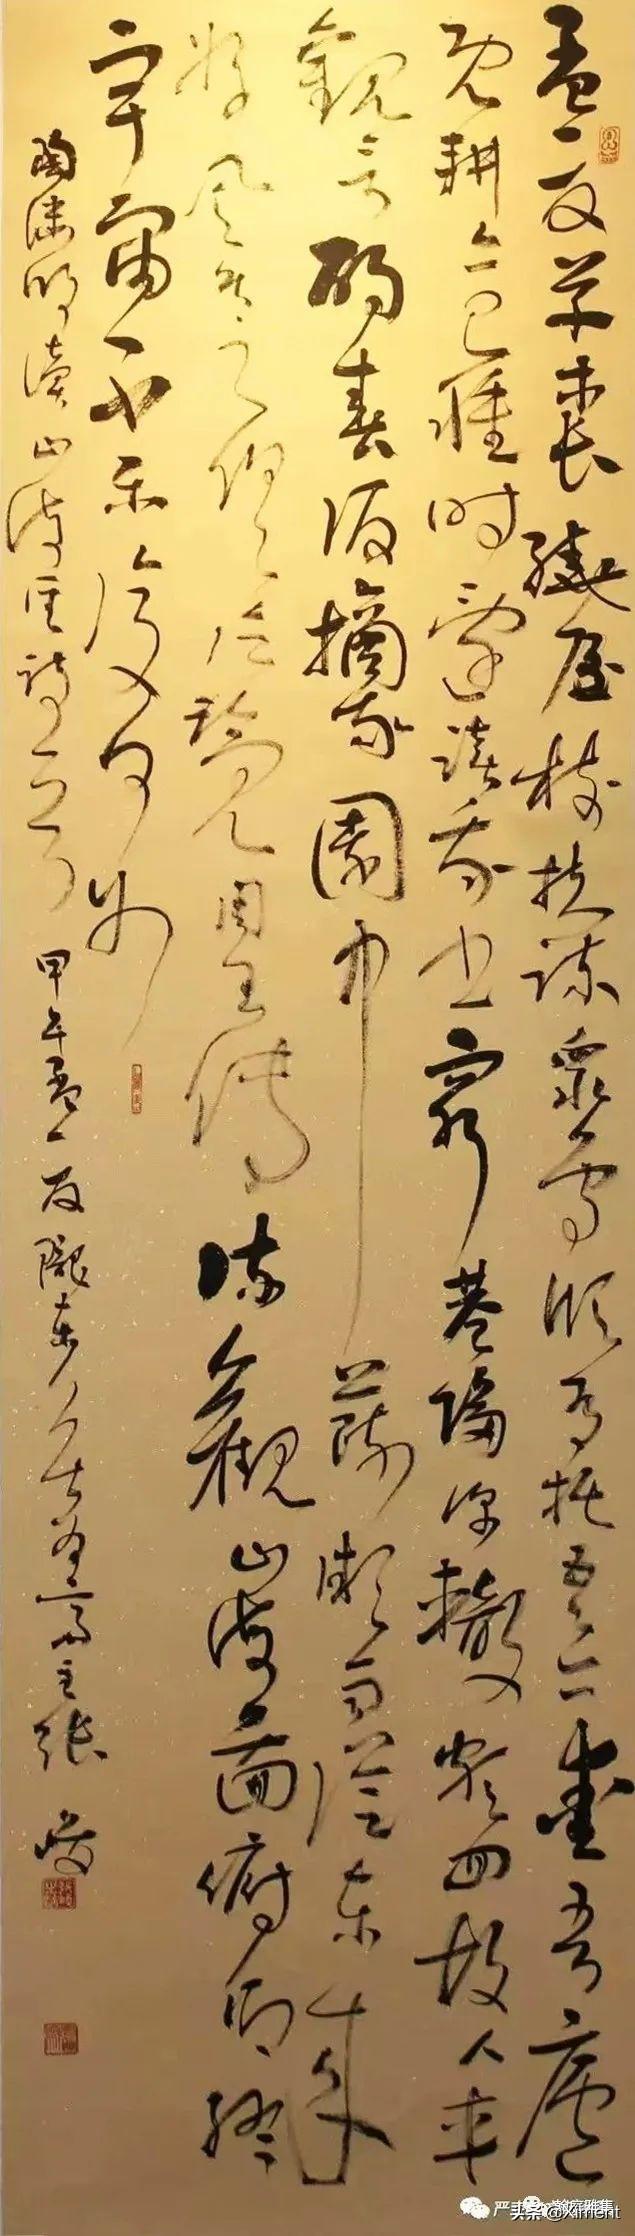 孟夏草木長繞屋樹扶疏衆鳥欣有托吾亦愛吾廬
既耕亦已種時還讀我書窮巷隔深轍頗回故人車
歡言酌春酒摘我園中蔬微雨從東來
好風與之俱泛覽周王傳流觀山海圖俯仰終
宇宙不樂復何如
陶淵明讀山海經詩 甲午孟夏隴東 齋主張
头条 @Ximent